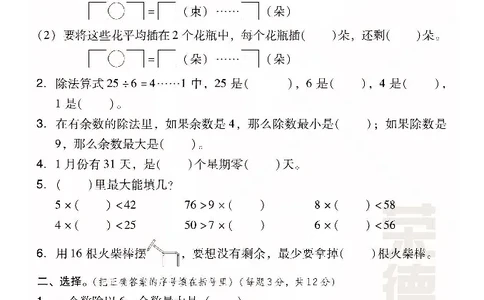 □○□=□(束)……□(朵)
(2)要将这些花平均插在2个花瓶中，每个花瓶插(　　)朵，还剩(　　)朵。
□○□=□(朵)……□(朵)
2. 除法算式25÷6=4……1中，25是(　　)，6是(　　)，4是(　　)，
1是(　　)。
3. 在有余数的除法里，如果余数是4，那么除数最小是(　　)；如果除数是
9，那么余数最大是(　　)。
4. 1月份有31天，是(　　)个星期零(　　)天。
5. (　　)里最大能填几？
5×(　　)<42　　76>9×(　　)　　8×(　　)<58
4×(　　)<25　　50>7×(　　)　　6×(　　)<56
6. 用16根火柴棒摆　　，要想没有剩余，最少要拿掉(　　)根火柴棒。
二、选择。(把正确答案的序号填在括号里)(每题3分，共12分)
荣德